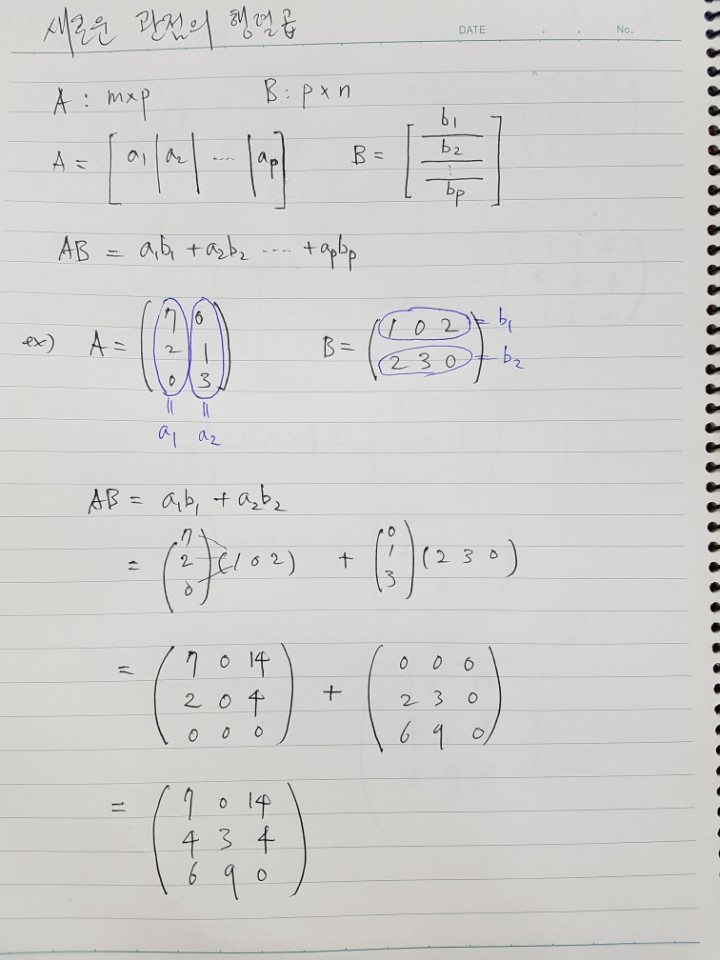 새로운 관점의 행렬곱
DATE . . No.
A : m×p B : p×n
A = [ a1 | a2 | ···· | ap ] B = [ b1 / b2 / ⋮ / bp ]
AB = a1b1 + a2b2 ···· + apbp
ex) A = ( 7 0 B = ( 1 0 2 ) = b1
2 1 ( 2 3 0 ) = b2
0 3 )
= =
a1 a2
AB = a1b1 + a2b2
= ( 7 2 0 ) ( 1 0 2 ) + ( 0 1 3 ) ( 2 3 0 )
= ( 7 0 14 + ( 0 0 0
2 0 4 2 3 0
0 0 0 ) 6 9 0 )
= ( 7 0 14
4 3 4
6 9 0 )